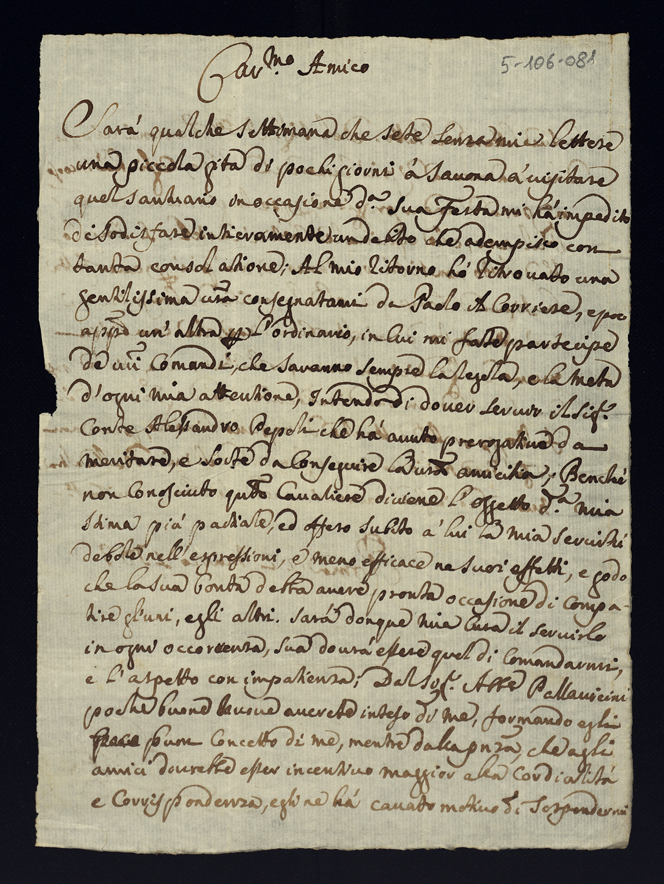 5-106-081
Car.mo Amico
Sarà qualche settimana che sete senza mie lettere
una piccola gita di pochi giorni à Savona à visitare
quel santuario in occasione d.a sua Festa mi hà impedito
di sodisfare intieramente un debito che adempisco con
tanta consolatione; Al mio ritorno hò ritrovato una
gentilissima vra consegnatami da Paolo Al Corriere, e poco
un' altra l'ordinario, in cui mi fate partecipe
de Comandi, che saranno sempre la regola, e la meta
d'ogni mia attentione, Intendo di dover servir il Sig.r
Conte Alessandro Pepoli che hà avuto prerogative da
meritare, e sorte da Conseguire la vra amicitia; Benche
non Conosciuto qsto Cavaliere diviene l'oggetto d.a mia
stima più partiale, ed offero subito à lui la mia servitù
debole nell'espressioni, e meno efficace ne suoi effetti, e godo
che la sua bontà detta avere pronta occasione di compa-
tire gl'uni, e gli altri. sarà donque mia cura il servirlo
in ogni occorrenza, sua dourà essere quel di Comandarmi,
e l'aspetto con impatienza; Dal Sig.r Abbe Pallavicini
poche buone nuove averete inteso di me, formando egli
poco buon Concetto di me, mentre dalla che agli
amici dourebbe esser incentivo maggior alla Cordialità
e Corrispondenza, egli ne hà cavato motivo di